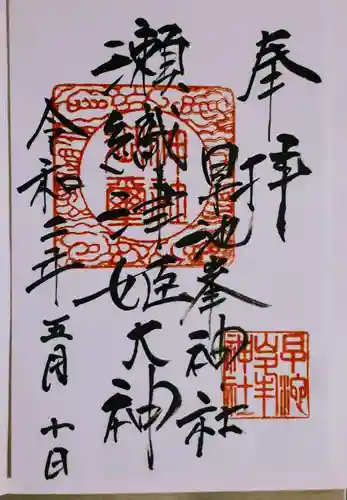 奉拝
早池峯神社
瀬織津姫大神
令和二年五月十日
早池峯神社